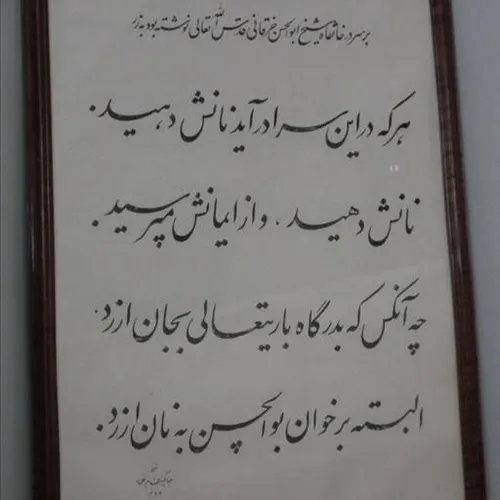 بر سر در خانقاه شیخ ابوالحسن خرقانی قدس الله تعالی نوشته بود به زر
هرکه در این سرا درآید نانش دهید.
نانش دهید، و از ایمانش مپرسید.
چه آنکس که بدرگاه باریتعالی بجان ارزد.
البته بر خوان بوالحسن به نان ارزد.